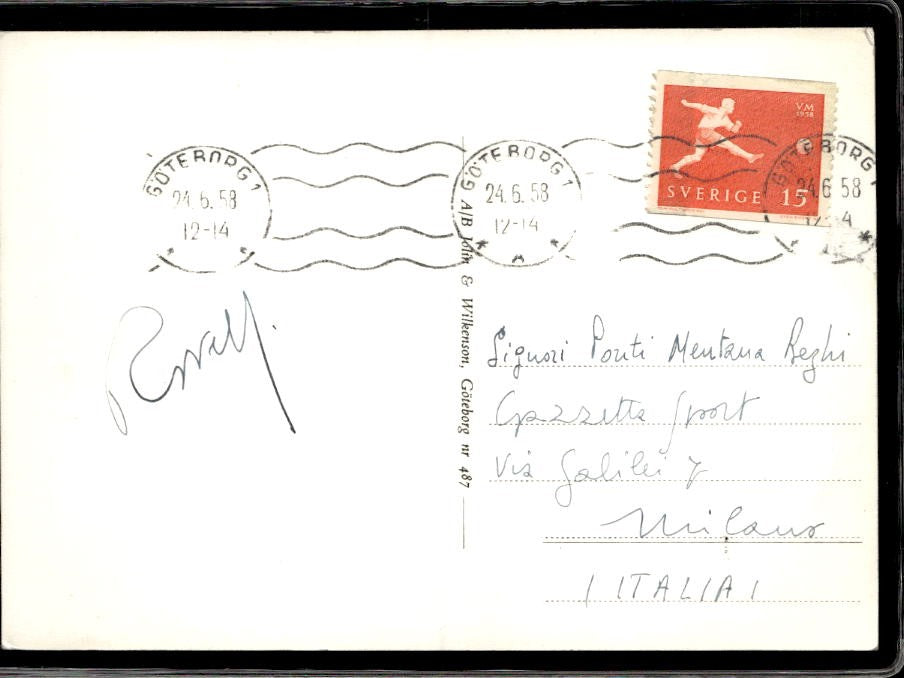 GÖTEBORG 1
24.6.58
12-14
GÖTEBORG 1
24.6.58
12-14
VM
1958
SVERIGE 15
GÖTEBORG
24.6 58
A/B John & Wilkenson, Göteborg nr 487
Signori Ponti Mentana Reghi
Gazzetta Sport
Via Galilei 7
Milano
(ITALIA)